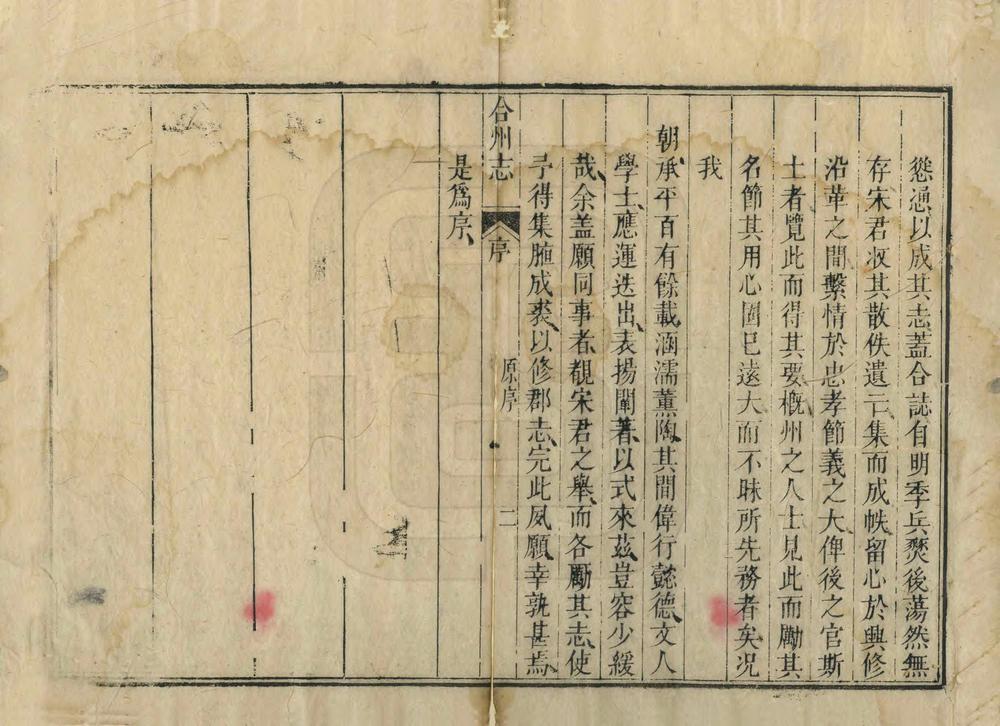 慫慂以成其志蓋合誌自明季兵燹後蕩然無
存宋君收其散佚遺亡集而成帙留心於興修
沿革之間繫情於忠孝節義之大俾後之官斯
土者覽此而得其要概州之人士見此而勵其
名節其用心固已遠大而不昧所先務者矣况
我
朝承平百有餘載涵濡薰陶其間偉行懿德文人
學士應運迭出表揚闡著以式來茲豈容少緩
哉余盖願同事者覩宋君之舉而各勵其志使
予得集腋成裘以修郡志完此夙願幸孰甚焉
是為序
合州志 序 原序 二